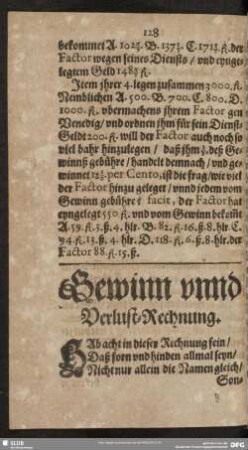 128
bekommet A. 102 4/7. B. 137 1/7. C. 171 3/7. fl. der
Factor wegen seines Diensts / vnd eynge-
legtem Geld 148 4/7 fl.
Item jhrer 4. legen zusammen 3000. fl.
Nemblichen A. 500. B. 700. C. 800. D.
1000. fl. vbermachens jhrem Factor gen
Venedig / vnd ordnen jhm für sein Dienst
Geldt 200. fl. will der Factor auch noch so
viel bahr hinzulegen / daß jhm deß Ge-
winnß gebühre / handelt demnach / vnd ge-
winnet per Cento, ist die frag / wie viel
der Factor hinzu geleget / vnnd jedem vom
Gewinn gebühre? facit, der Factor hat
eyngelegt 550 fl. vnd vom Gewinn bekomt
A. 59. fl. 5. ß. 4. hlr. B. 82. fl. 16. ß. 8. hlr. C.
94. fl. 13. ß. 4. hlr. D. 118. fl. 6. ß. 8. hlr. der
Factor 88. fl. 15. ß.
Gewinn vnnd
Verlust-Rechnung.
HAb acht in dieser Rechnung fein /
Daß forn vnd hinden allmal seyn /
Nicht nur allein die Namen gleich /
Son-
SLUB
DFG